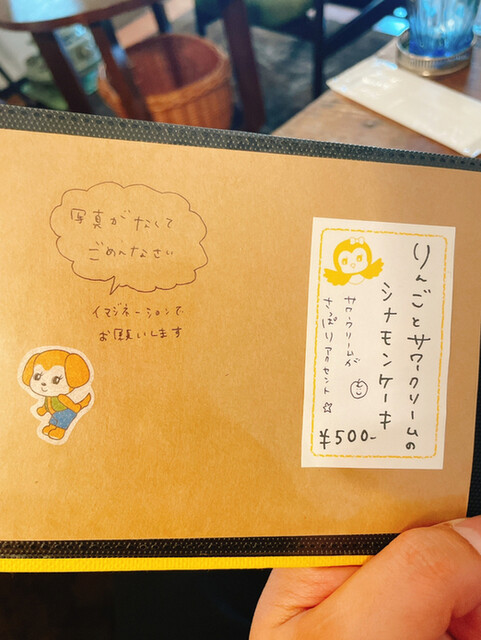 写真がなくて
ごめんなさい
イマジネーションで
お願いします
りんごとサワークリームの
シナモンケーキ
サワークリームが
さっぱりアクセント☆
¥500-